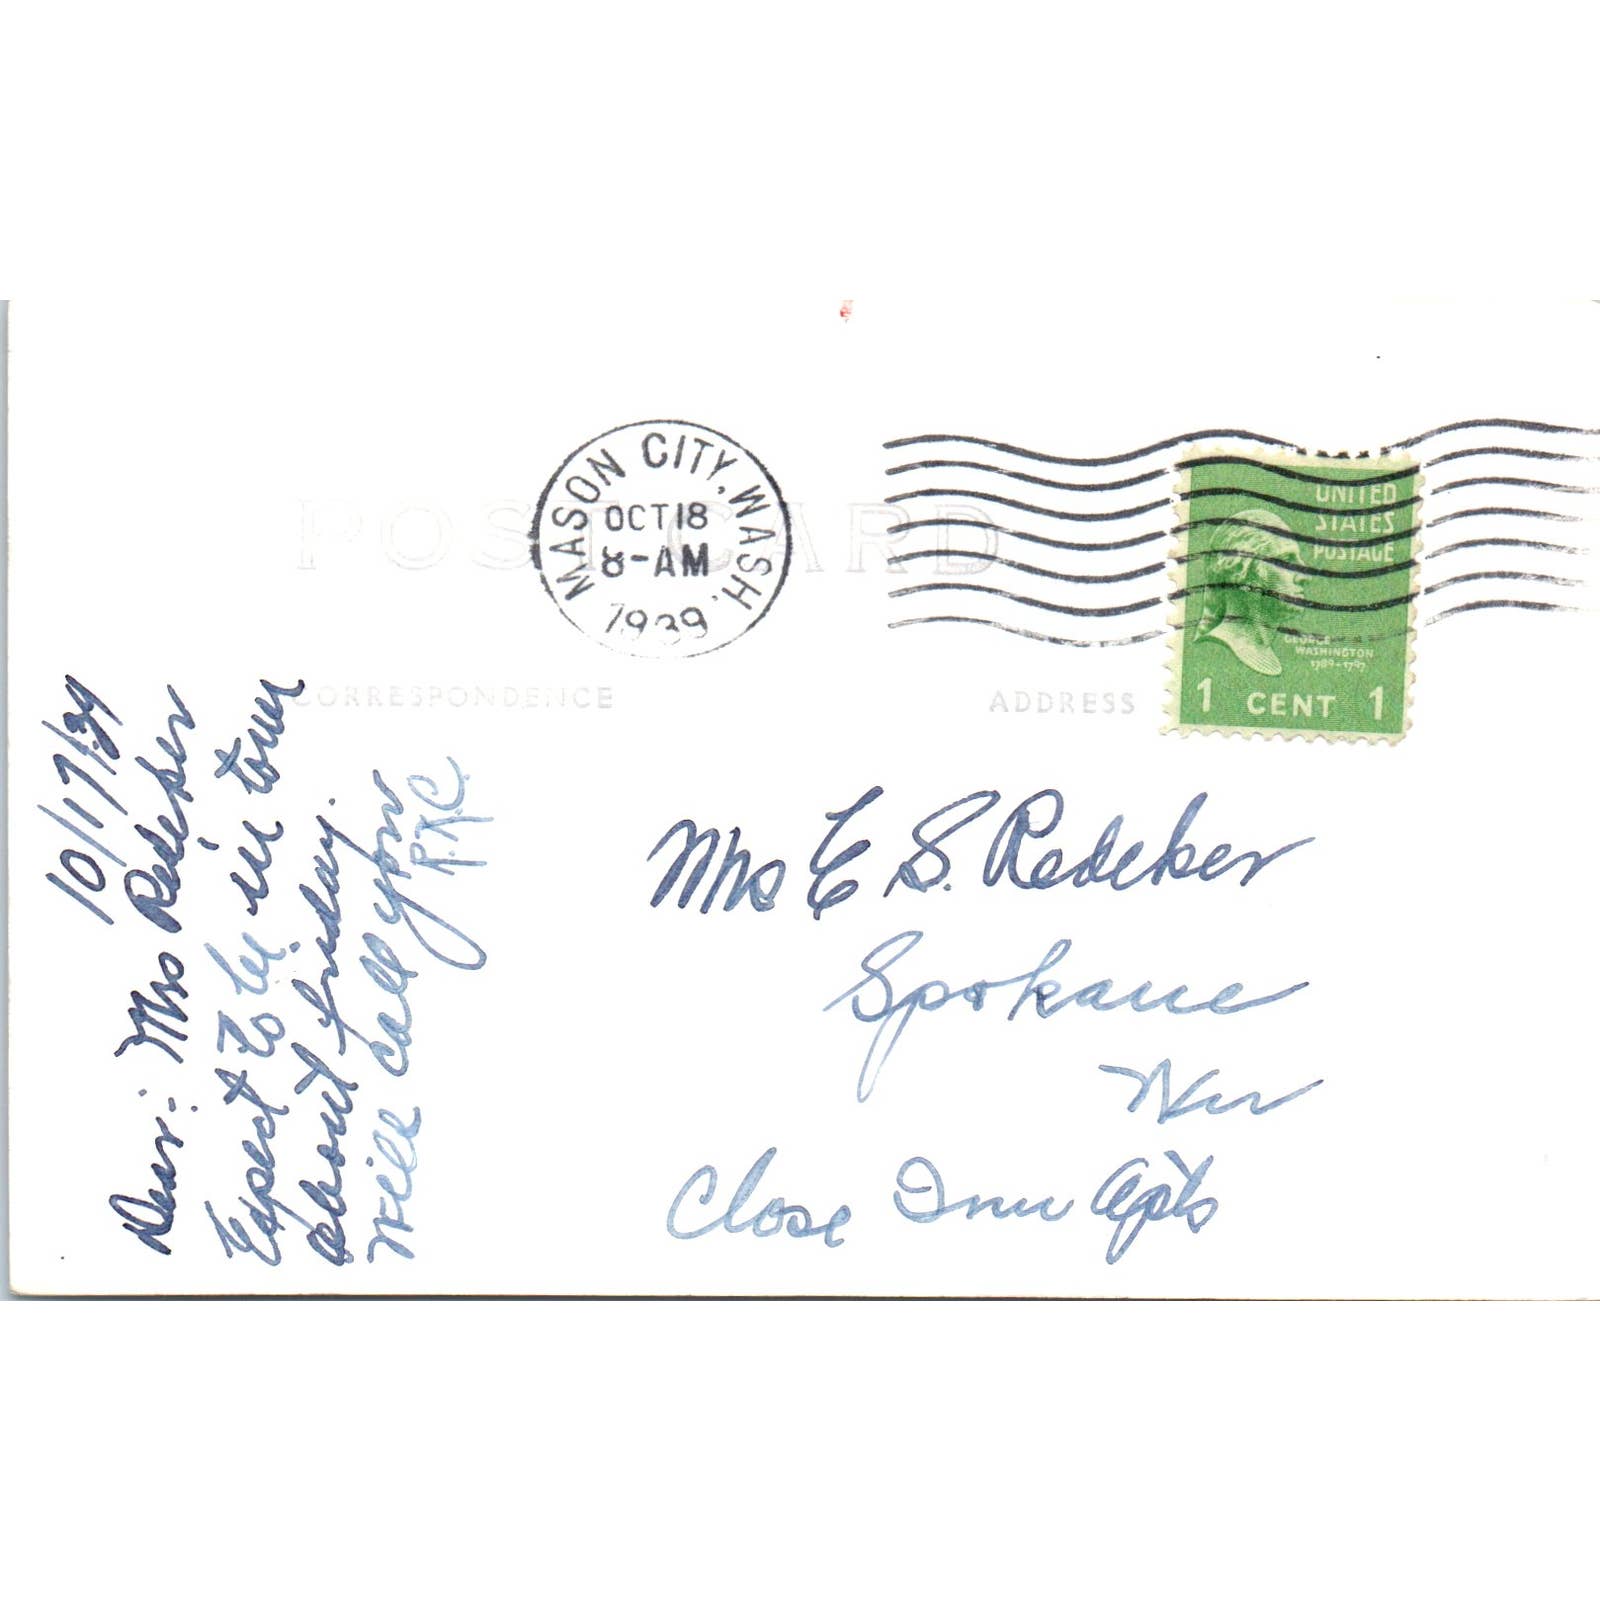 POST CARD
MASON CITY, WASH.
OCT 18
8-AM
1939
UNITED
STATES
POSTAGE
GEORGE
WASHINGTON
1789-1797
1 CENT 1
CORRESPONDENCE
ADDRESS
10/17/39
Dear: Mrs Redeker
Expect to be in town
about friday.
Will call you
R.K.C.
Mrs E S. Redeker
Spokane
Wn
Close Inn Apts